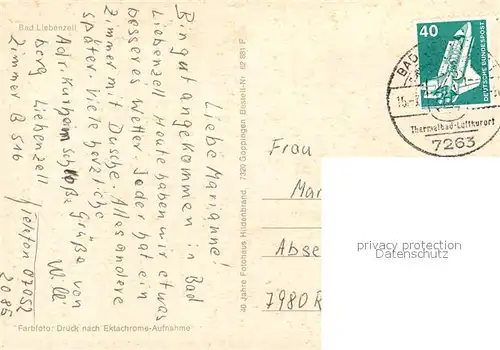 Bad Liebenzell
Liebe Marianne!
Bin gut angekommen in Bad
Liebenzell Heute haben wir etwas
besseres Wetter. Jeder hat ein
Zimmer mit Dusche. Alles andere
später. Viele herzliche
Grüße von
Willi
Adr. Kurheim Schloß
berg Liebenzell
Zimmer B 516
Telefon 07052
2086
40 Jahre Fotohaus Hildenbrand, 7320 Göppingen Bestell-Nr. 62 831 F
Farbfoto: Druck nach Ektachrome-Aufnahme
40
DEUTSCHE BUNDESPOST
BAD
15.
Thermalbad-Luftkurort
7263
Frau
Mar
Abse
7980 R
privacy protection
VandalismRes